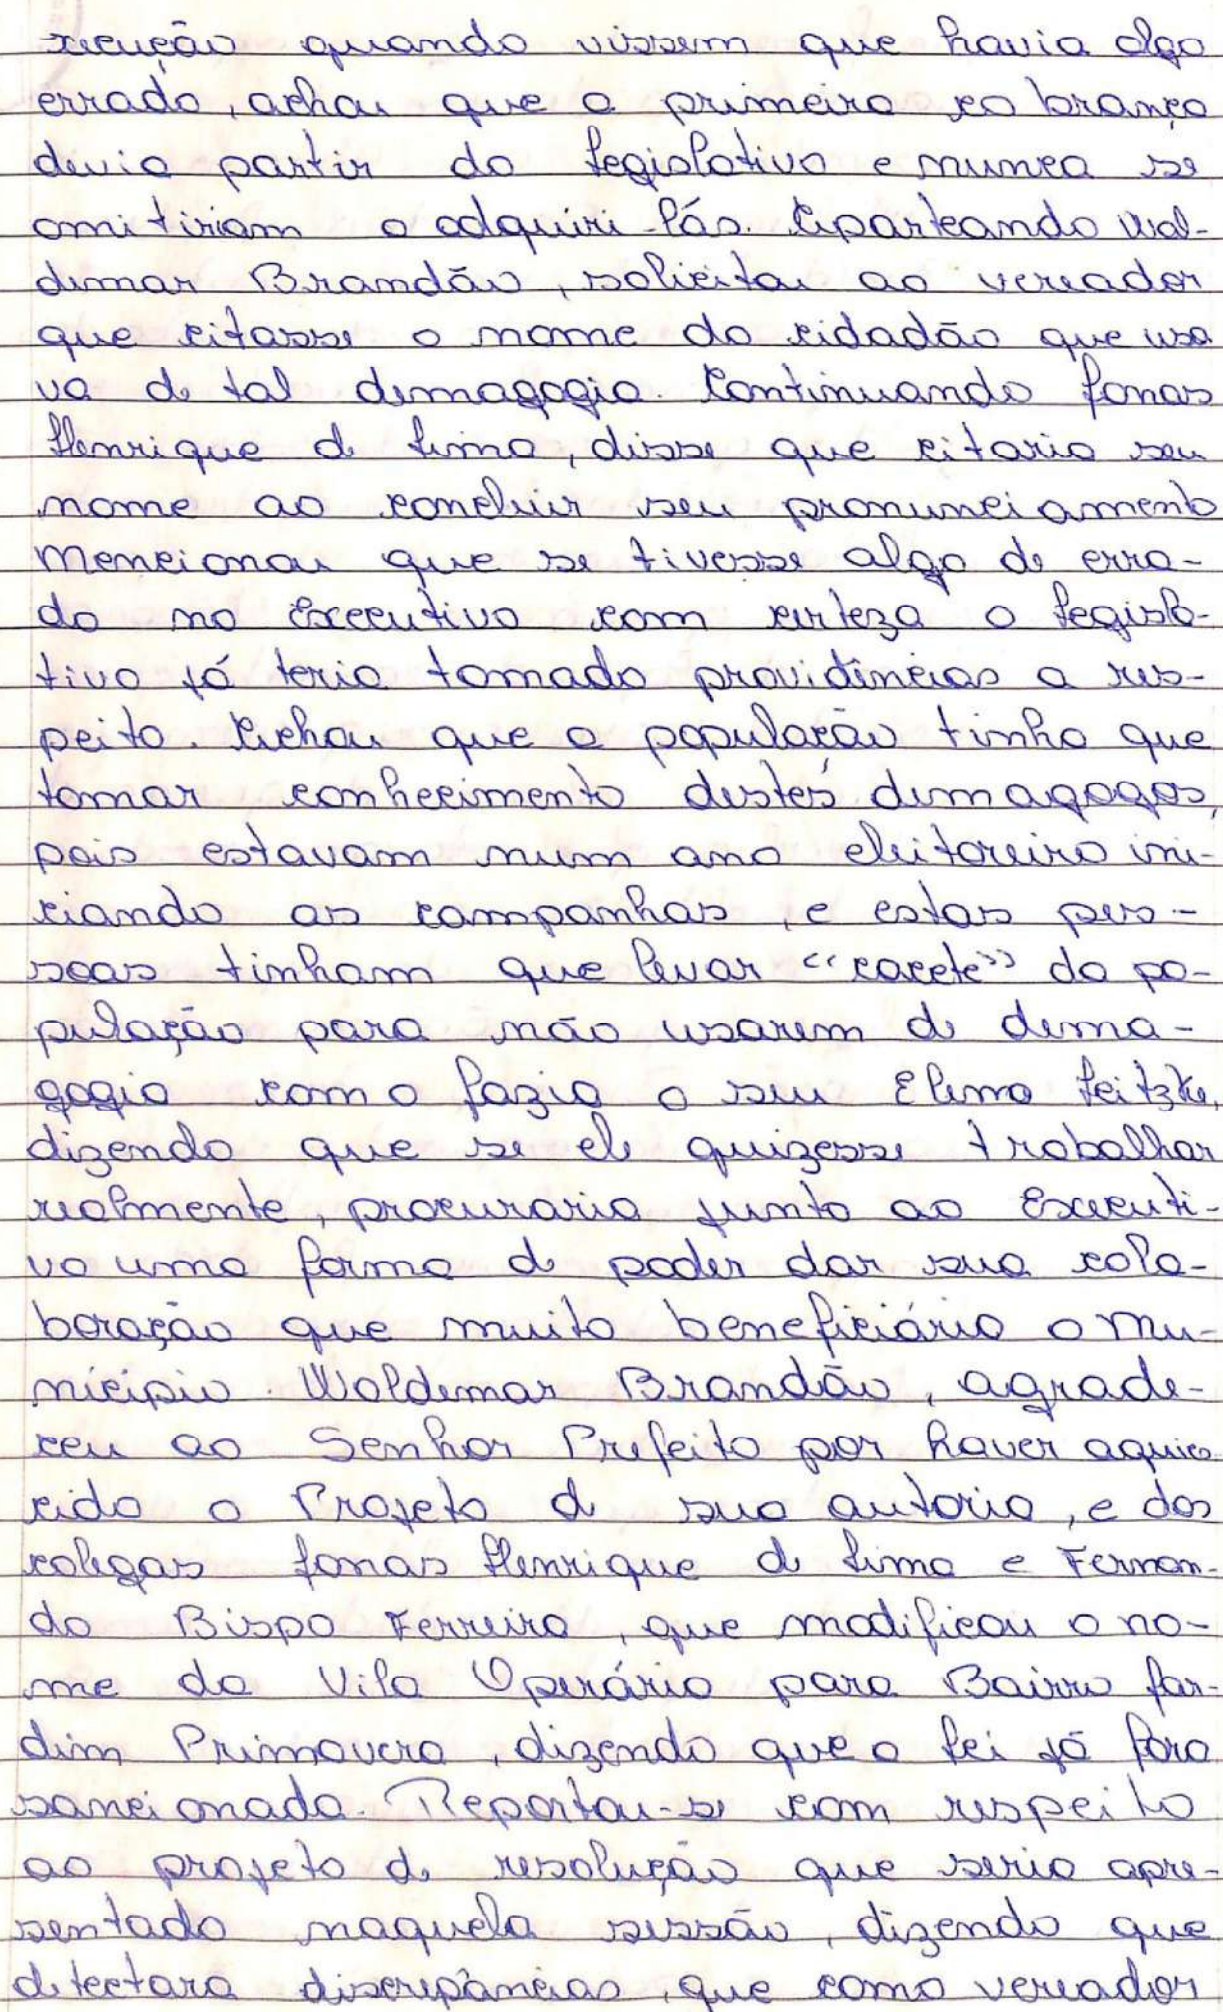 xecução quando vissem que havia algo
errado, achou que a primeira cobrança
devia partir do Legislativo e nunca se
omitiriam a adquiri-lás. Aparteando Wal-
demar Brandão, solicitou ao vereador
que citasse o nome do cidadão que usa
va de tal demagogia. Continuando Jonas
Henrique de Lima, disse que citaria seu
nome ao concluir seu pronunciamento
Mencionou que se tivesse algo de erra-
do no Executivo com certeza o Legisla-
tivo já teria tomado providências a res-
peito. Achou que a população tinha que
tomar conhecimento destes demagogos,
pois estavam num ano eleitoreiro ini-
ciando as campanhas, e estas pes-
soas tinham que levar "cacete" da po-
pulação para não usarem de dema-
gogia como fazia o seu Elemo Leitzke,
dizendo que se ele quizesse trabalhar
realmente, procuraria junto ao Executi-
vo uma forma de poder dar sua cola-
boração que muito beneficiária o Mu-
nícipio. Waldemar Brandão, agrade-
ceu ao Senhor Prefeito por haver aquies-
cido o Projeto de sua autoria, e dos
colegas Jonas Henrique de Lima e Fernan-
do Bispo Ferreira, que modificou o no-
me da Vila Operária para Bairro Jar-
dim Primavera, dizendo que a Lei já fora
sancionada. Reportou-se com respeito
ao projeto de resolução que seria apre-
sentado naquela sessão, dizendo que
detectara discrepâncias, que como vereador